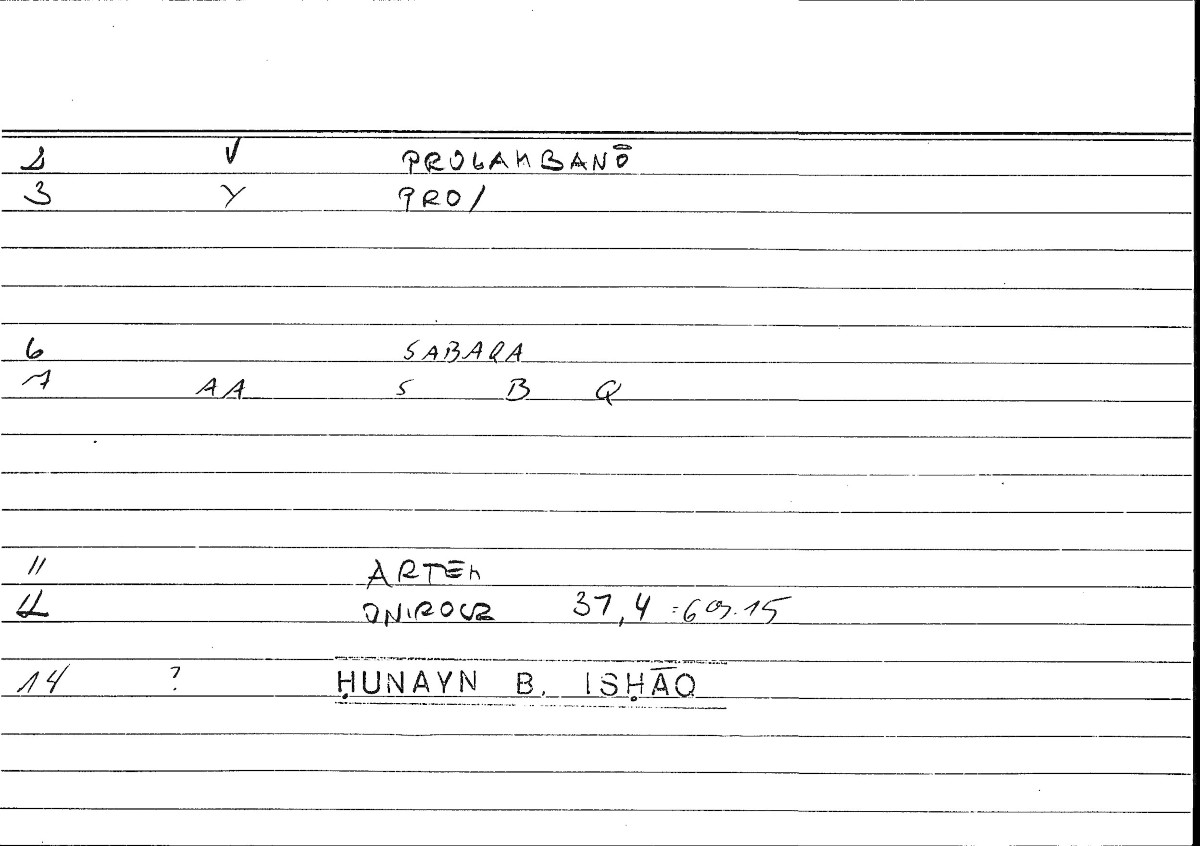 2 V PROLAMBANŌ
3 Y PRO/
6 SABAQA
7 AA S B Q
11 ARTEM
12 ONIROCR 37,4 = 69.15
14 ? ḤUNAYN B. ISḤĀQ